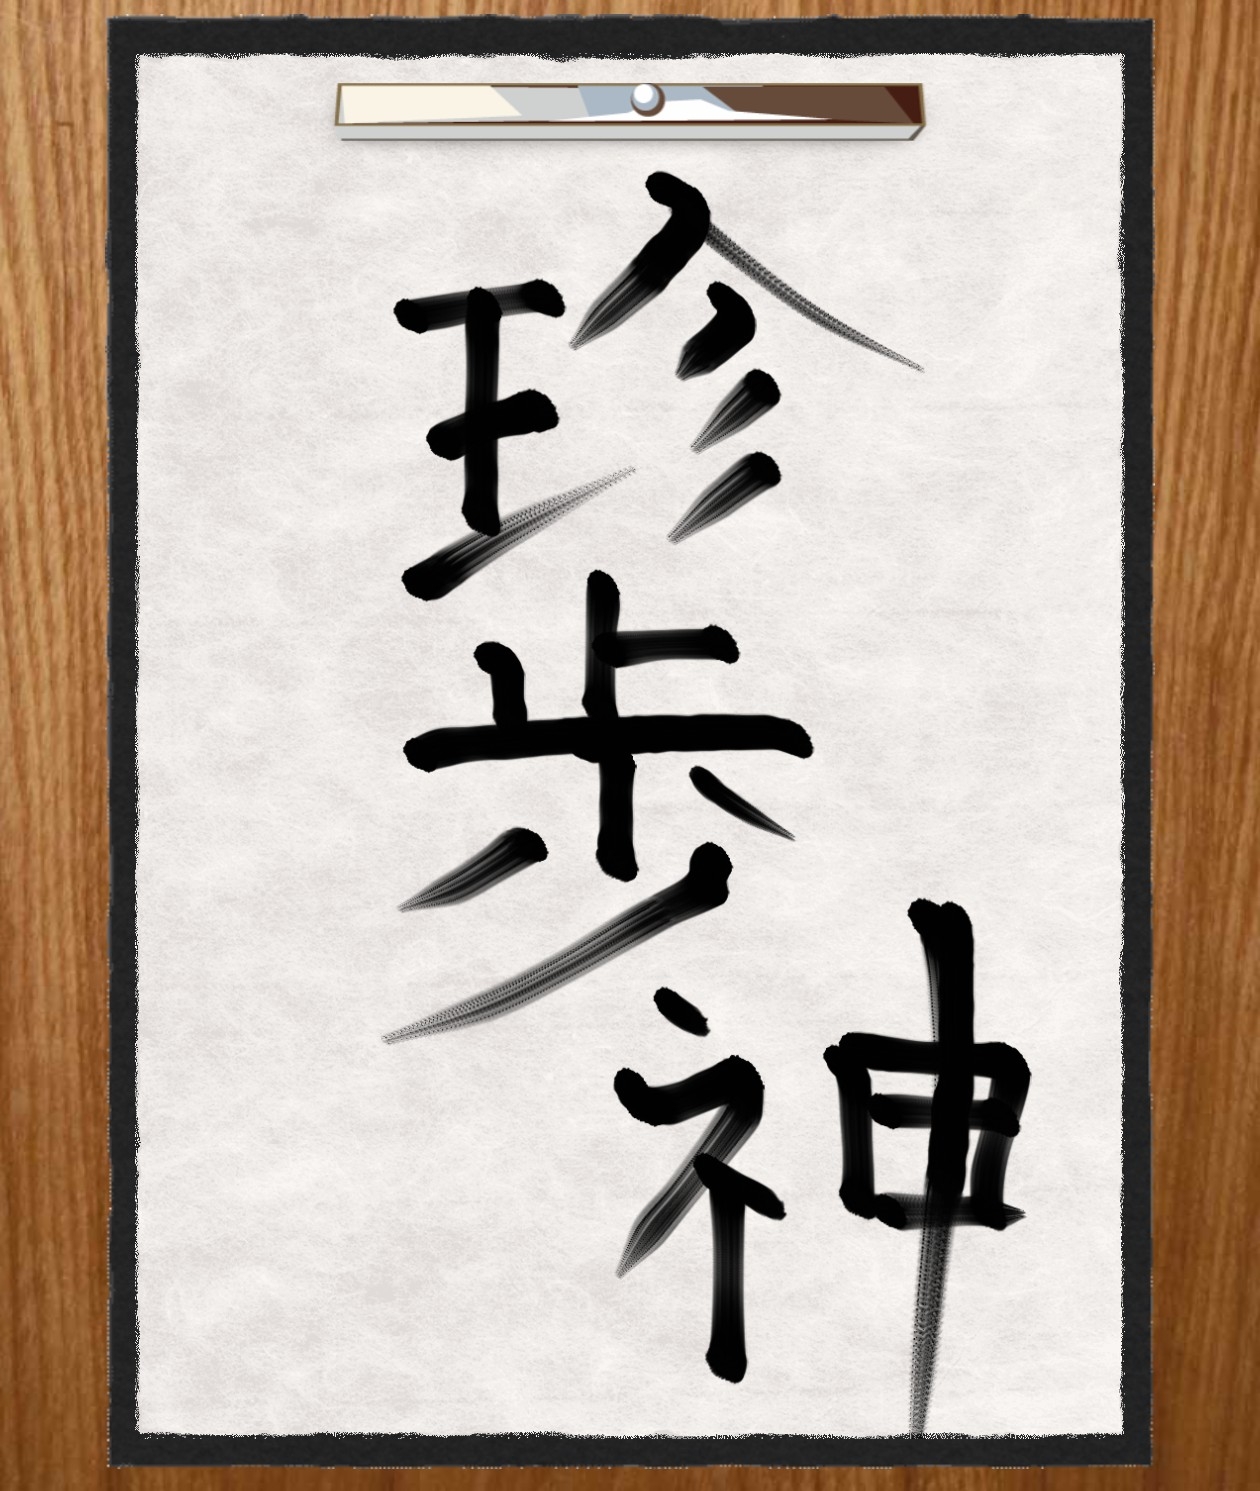 珍歩神